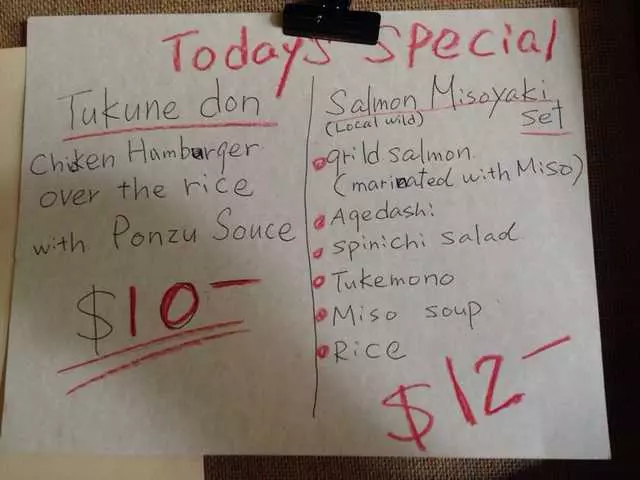 Todays Special
Tukune don
Chiken Hamburger
over the rice
with Ponzu Souce
$10-
Salmon Misoyaki
(Local wild) Set
grild salmon
(marinated with Miso)
Agedashi
spinichi salad
Tukemono
Miso soup
Rice
$12-